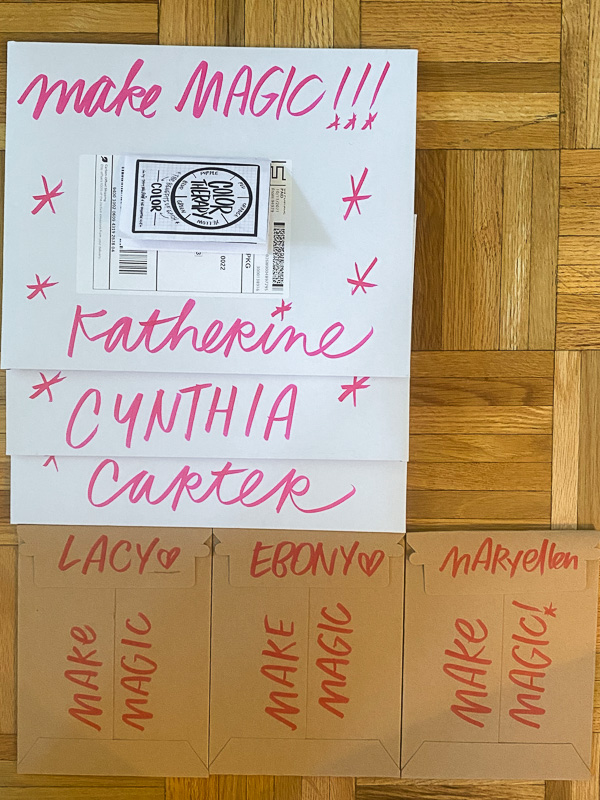 make MAGIC!!!
PURPLE
COLOR
THERAPY
YELLOW
COLOR
0022
PKG
Katherine
CYNTHIA
Carter
LACY
EBONY
MARYellen
MAKE
MAGIC
MAKE
MAGIC
MAKE
MAGIC!